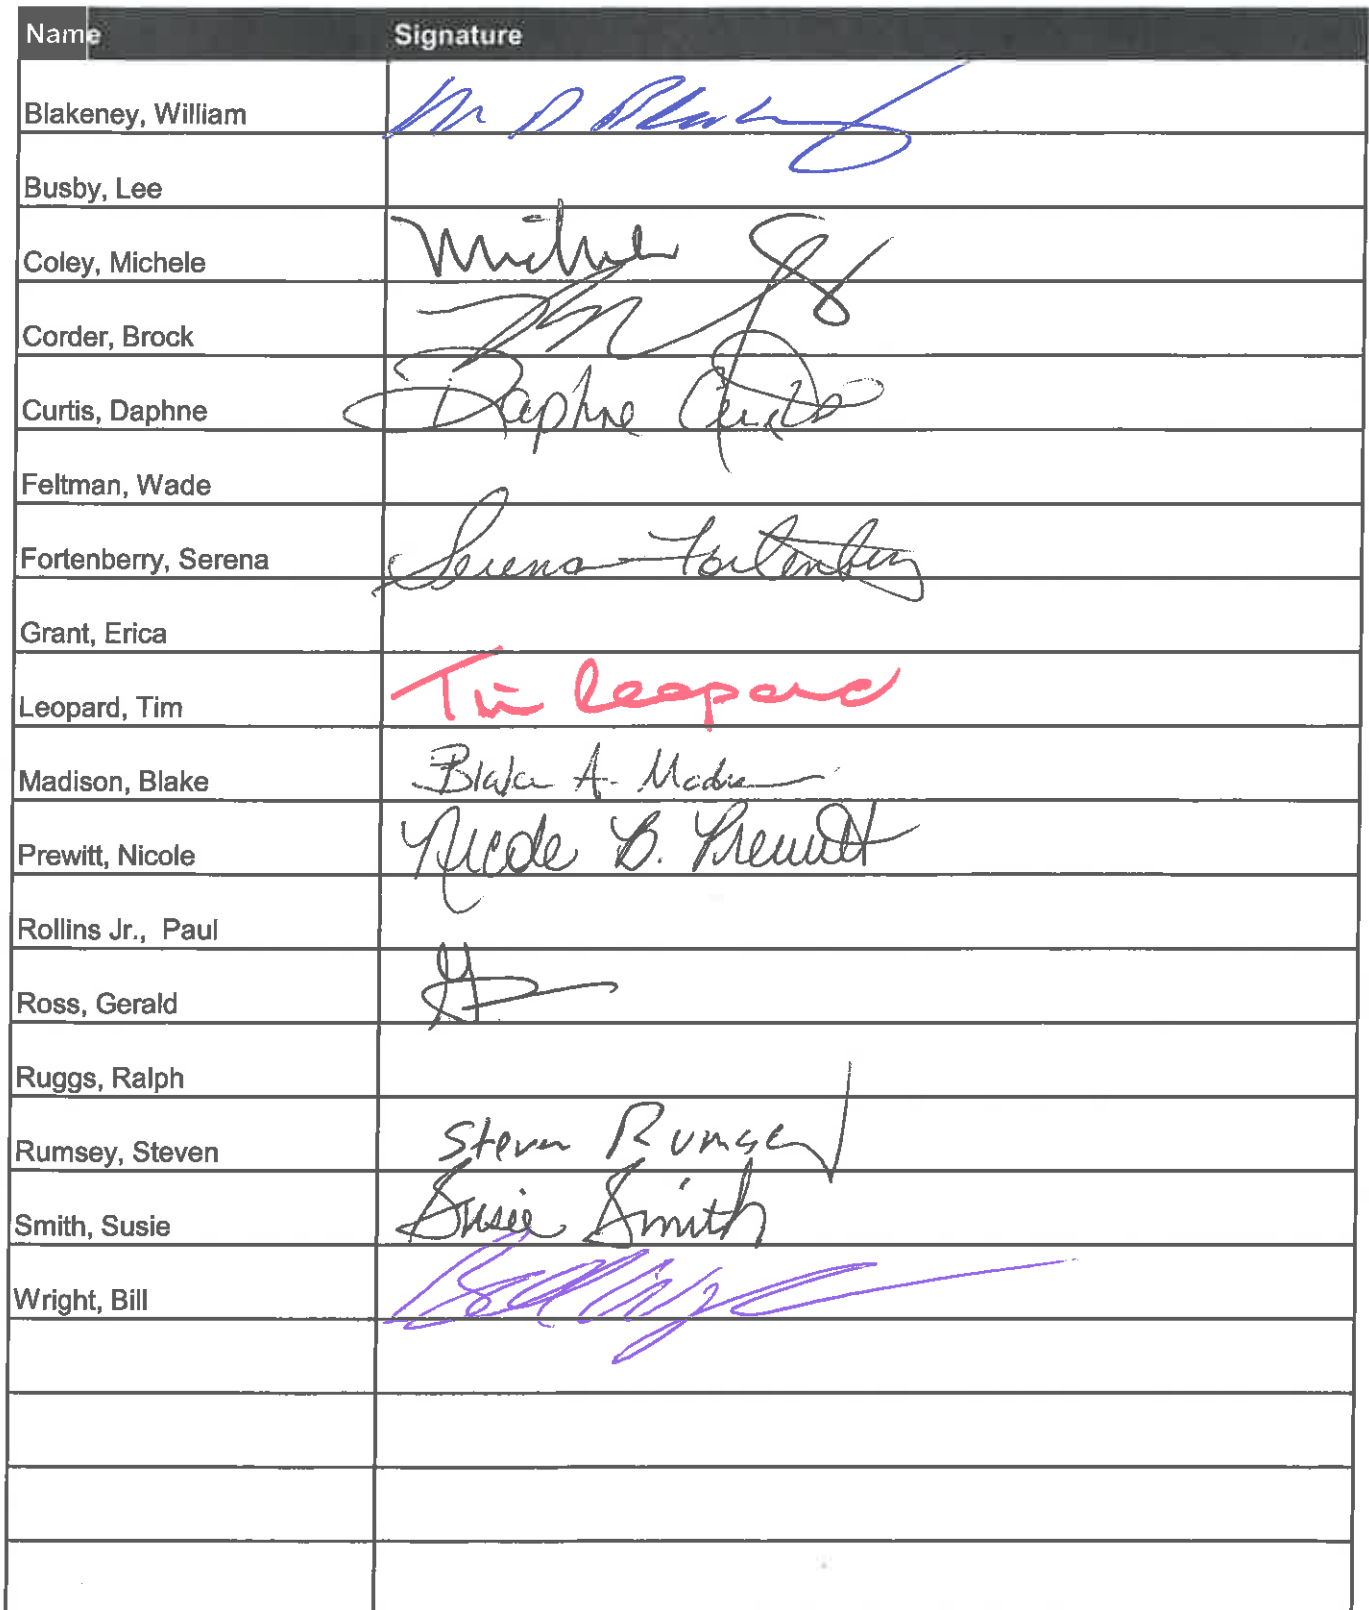 Name Signature
Blakeney, William
Busby, Lee
Coley, Michele Michele
Corder, Brock
Curtis, Daphne Daphne Curtis
Feltman, Wade
Fortenberry, Serena Serena Fortenberry
Grant, Erica
Leopard, Tim Tim Leopard
Madison, Blake Blake A. Madison
Prewitt, Nicole Nicole B. Prewitt
Rollins Jr., Paul
Ross, Gerald
Ruggs, Ralph
Rumsey, Steven Steven Rumsey
Smith, Susie Susie Smith
Wright, Bill